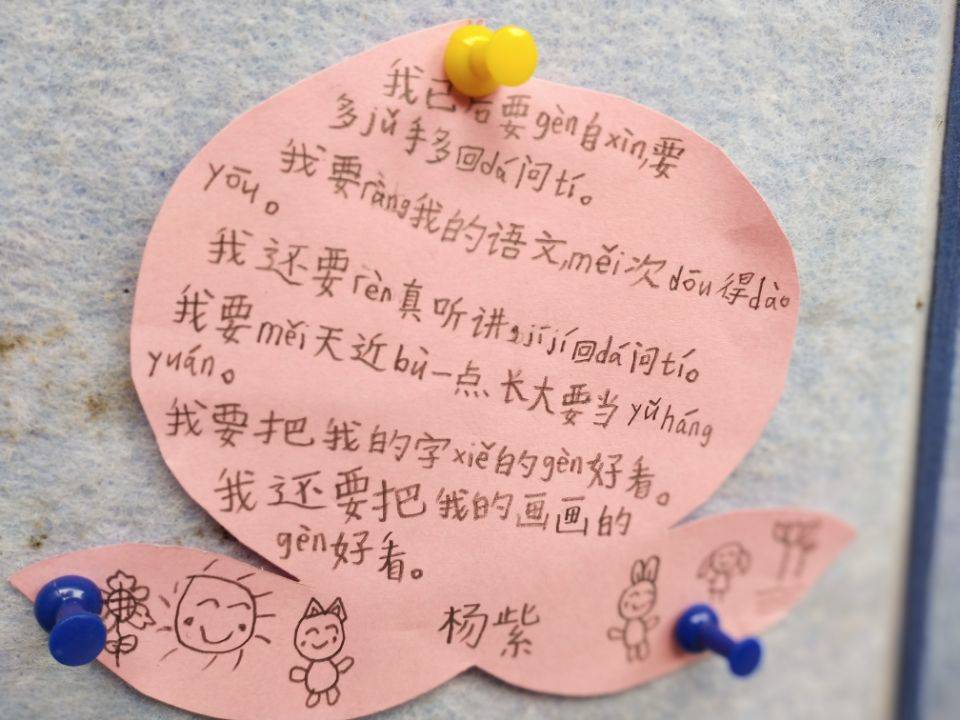 我已后要gèn自xìn,要
多jǔ手多回dá问tí。
我要ràng我的语文,měi次dōu得dào
yōu。
我还要rèn真听讲,jījí回dá问tí。
我要měi天近bù一点长大要当yǔháng
yuán。
我要把我的字xiě的gèn好看。
我还要把我的画画的
gèn好看。
杨紫